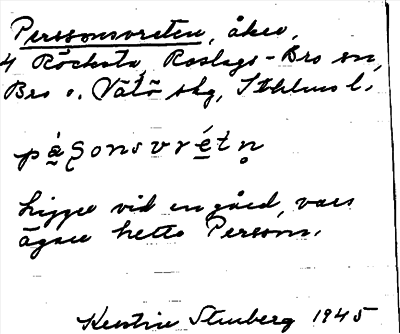 Perssonsvreten, åker,
4 Röcksta, Roslags-Bro sn,
Bro o. Vätö skg, Sthlms l.
pạ́ʂonsvrét̯n̥
Ligger vid en gård, vars
ägare hette Persson.
Kerstin Stenberg 1945